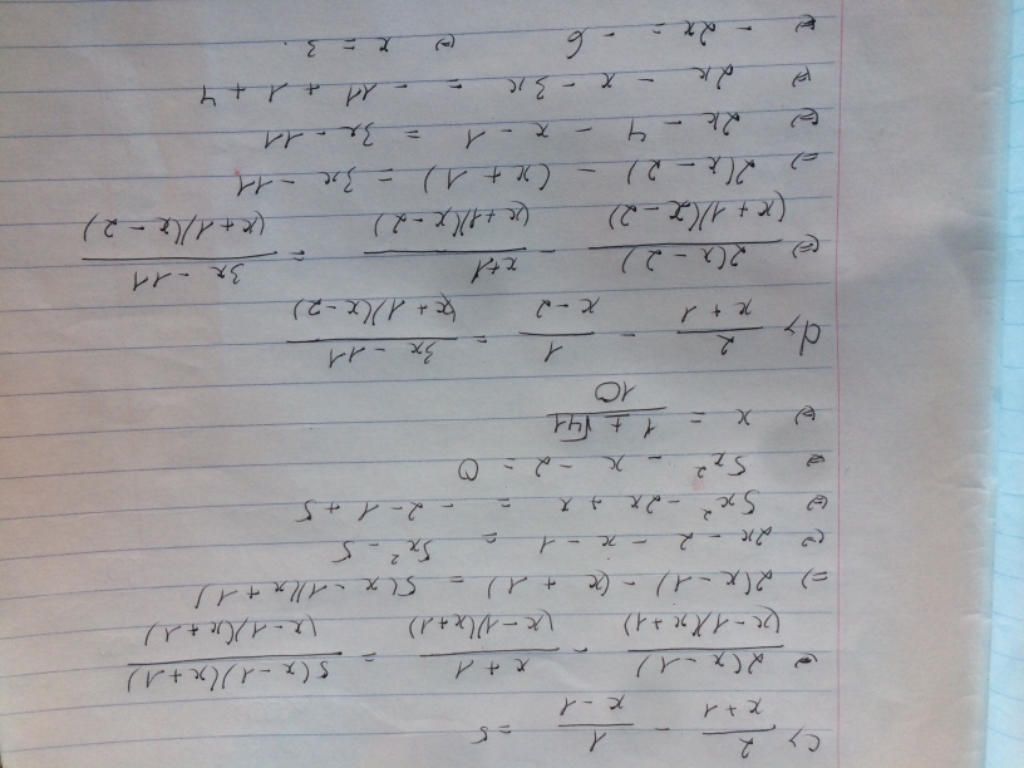 c> 2/(x + 1) - 1/(x - 1) = 5
⇔ 2(x - 1)/((x - 1)(x + 1)) - (x + 1)/((x - 1)(x + 1)) = 5(x - 1)(x + 1)/((x - 1)(x + 1))
⇒ 2(x - 1) - (x + 1) = 5(x - 1)(x + 1)
⇔ 2x - 2 - x - 1 = 5x² - 5
⇔ 5x² - 2x + x = - 2 - 1 + 5
⇔ 5x² - x - 2 = 0
⇔ x = (1 ± √41)/10
d> 2/(x + 1) - 1/(x - 2) = (3x - 11)/((x + 1)(x - 2))
⇔ 2(x - 2)/((x + 1)(x - 2)) - (x + 1)/((x + 1)(x - 2)) = (3x - 11)/((x + 1)(x - 2))
⇒ 2(x - 2) - (x + 1) = 3x - 11
⇔ 2x - 4 - x - 1 = 3x - 11
⇔ 2x - x - 3x = - 11 + 1 + 4
⇔ - 2x = - 6 ⇔ x = 3.